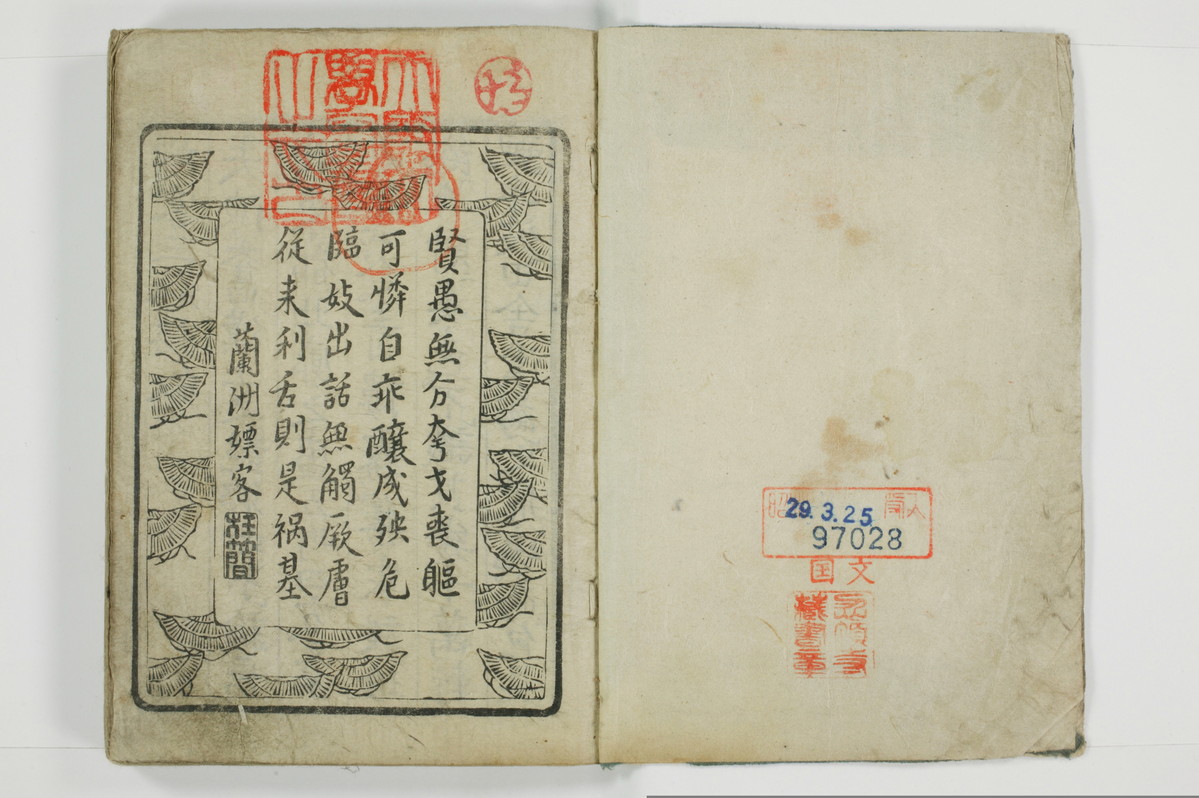 賢愚無分夸才喪軀
可憐自乖釀成殃危
臨妓出話無觸厥膚
從来利舌則是禍基
蘭洲嫖客
29.3.25
97028
国文